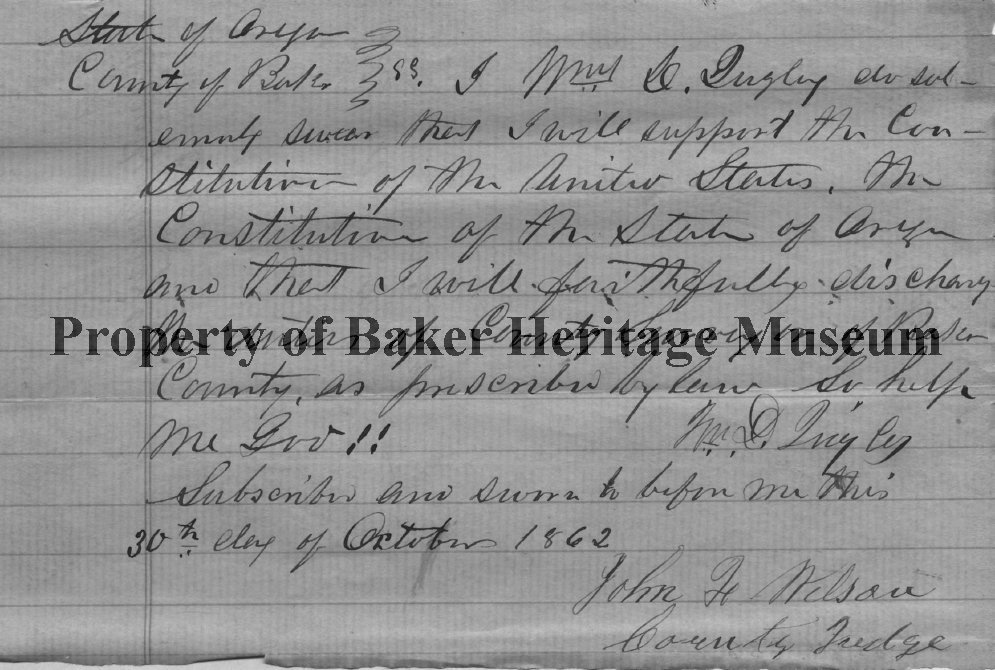 State of Oregon
County of Baker } SS. I Wm D. Quigley do sol-
emnly swear that I will support the Con-
stitution of the United States, the
Constitution of the State of Oregon
and that I will faithfully discharge
Property of Baker Heritage Museum
the duties of County Surveyor of Baker
County, as prescribed by law So help
me God!!
Wm. D. Quigley
Subscribed and sworn to before me this
30th day of October 1862
John F Wilson
County Judge